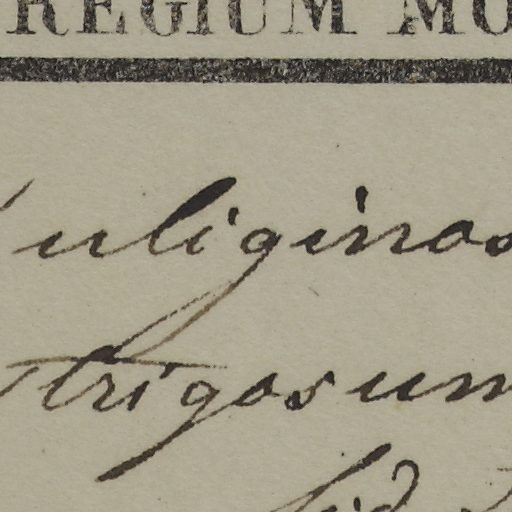 REGIUM MO
uliginos
strigosum